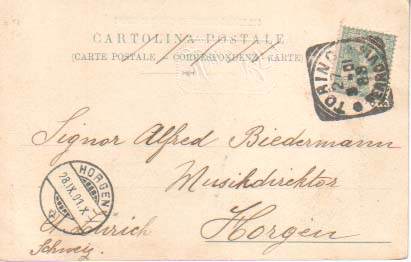 CARTOLINA POSTALE
(CARTE POSTALE - CORRESPONDENZ-KARTE)
TORINO
Signor Alfred Biedermann
Musikdirektor
Horgen
HORGEN
28.IX.01.X
Zürich
Schweiz.